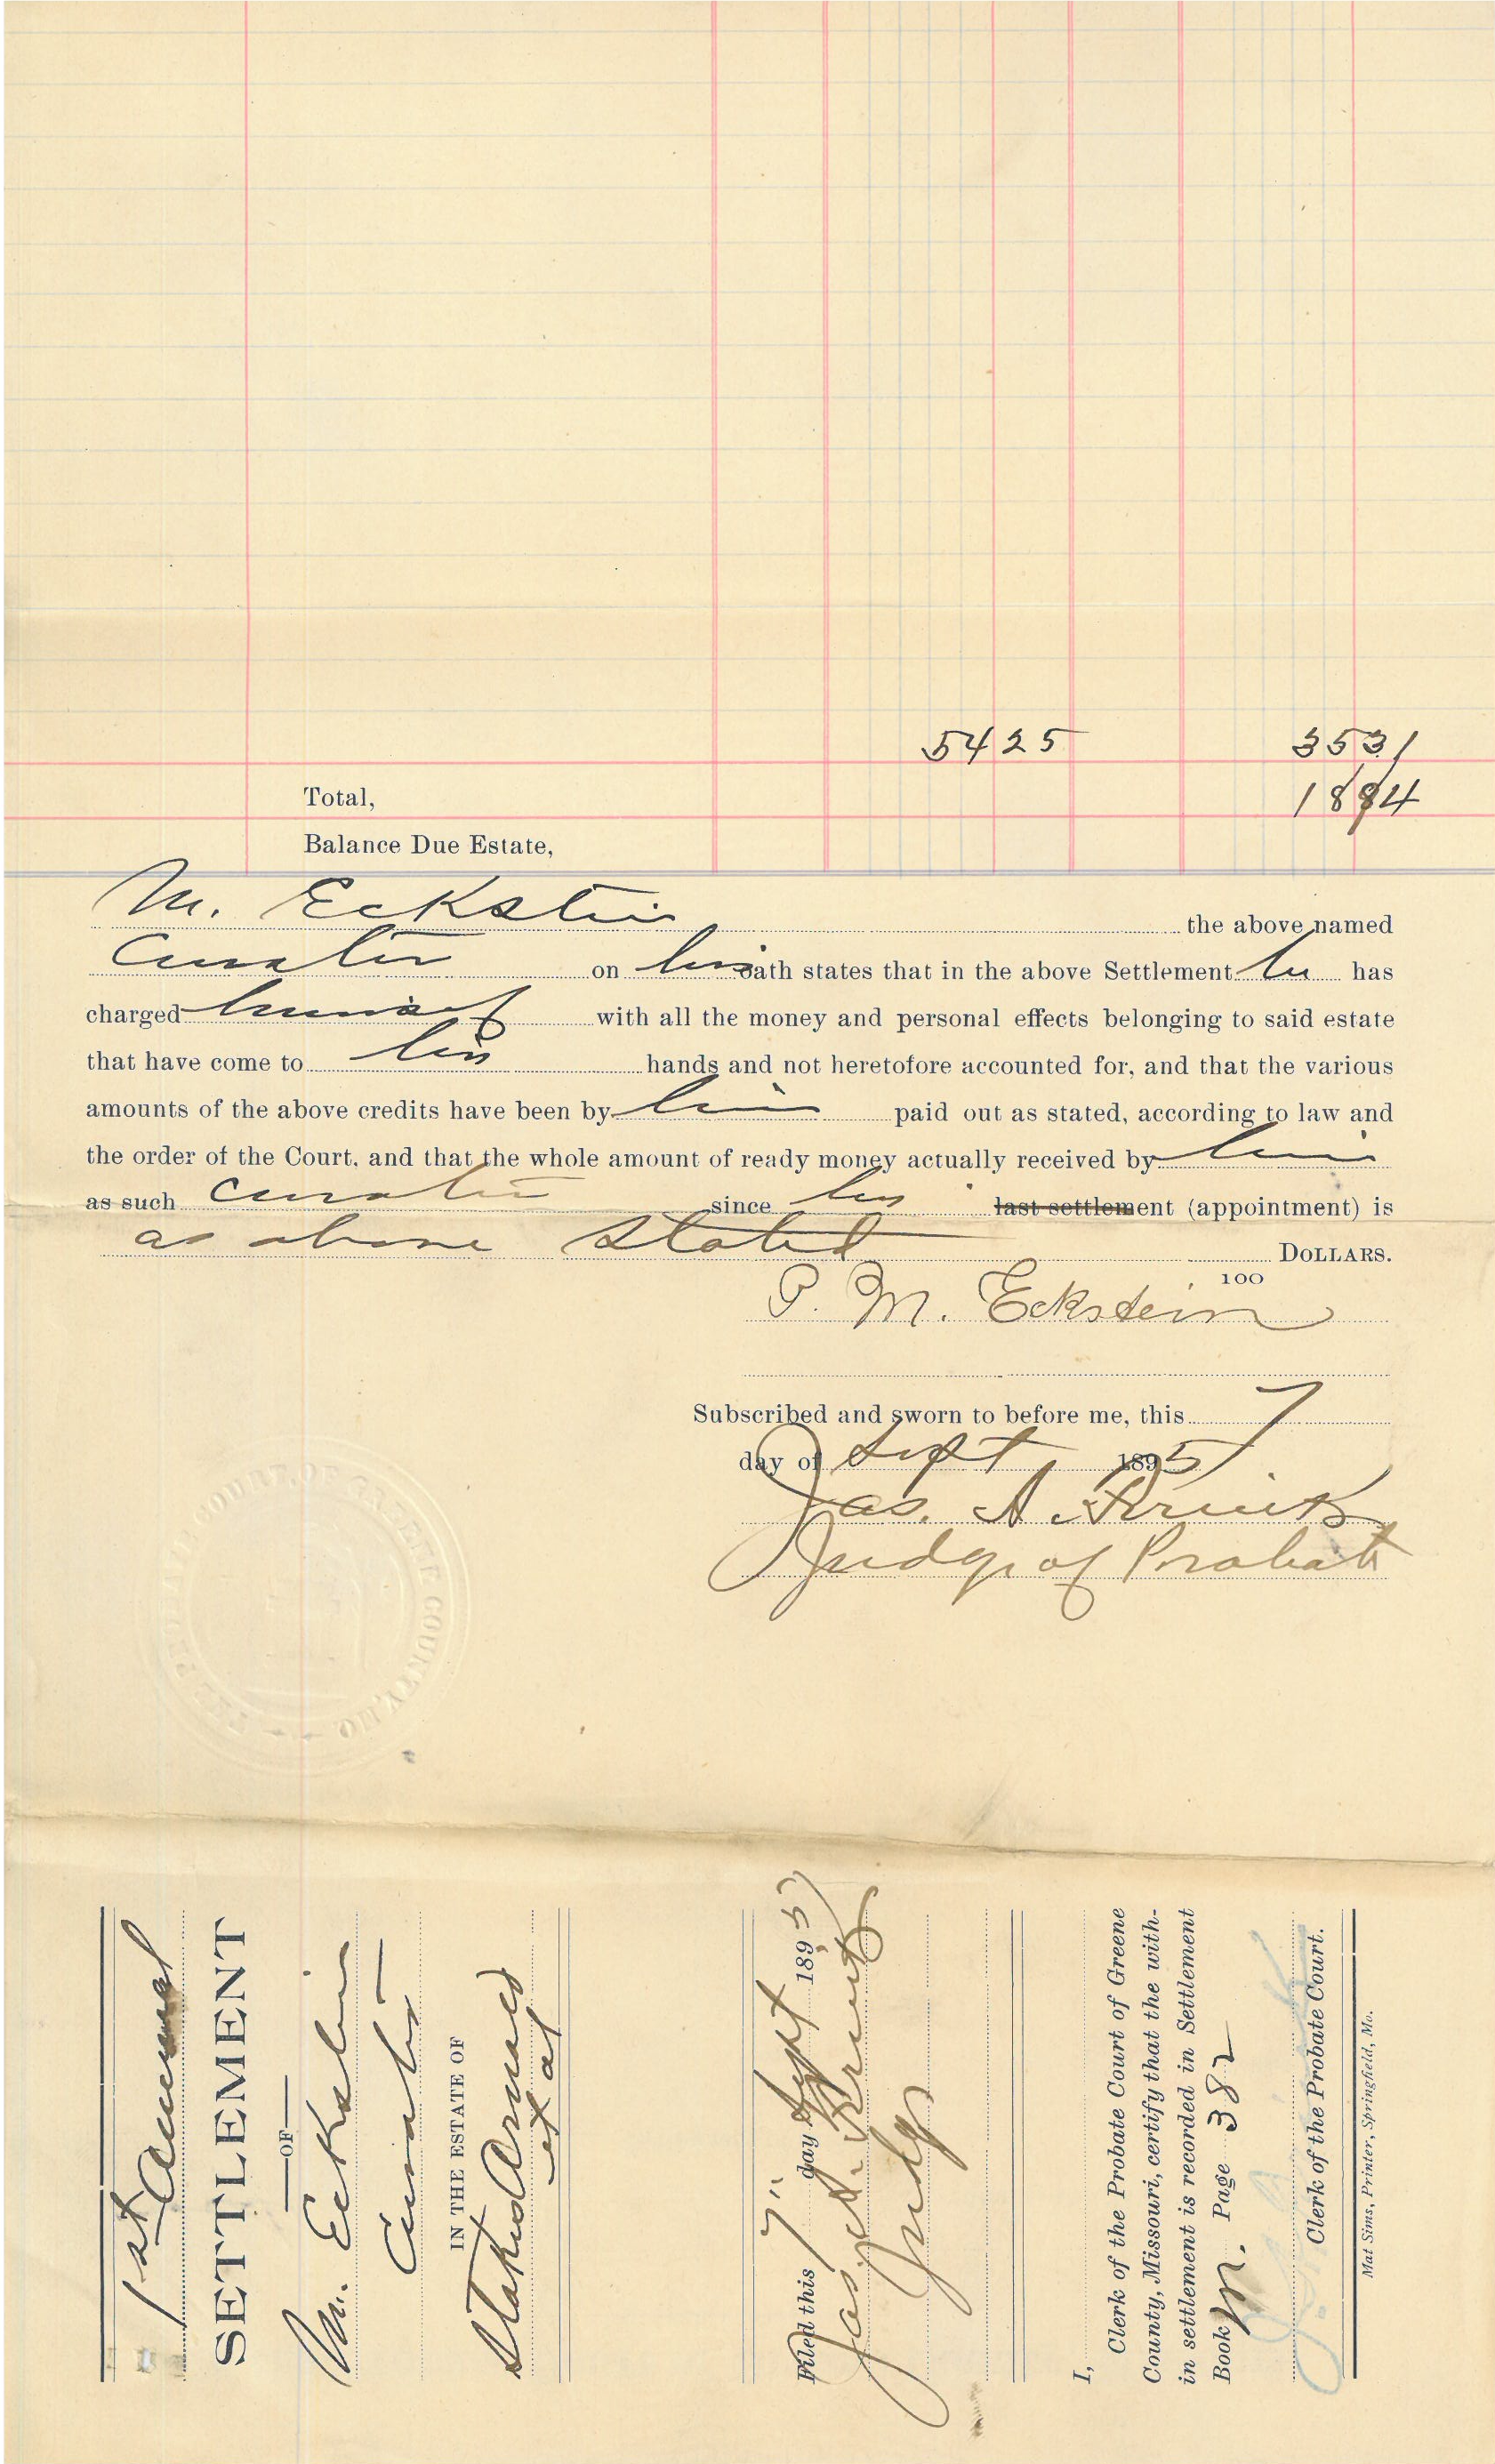 5425 3531
Total, 1894
Balance Due Estate,
M. Eckstein the above named
Curator on his oath states that in the above Settlement he has
charged himself with all the money and personal effects belonging to said estate
that have come to his hands and not heretofore accounted for, and that the various
amounts of the above credits have been by him paid out as stated, according to law and
the order of the Court, and that the whole amount of ready money actually received by him
as such curator since his last settlement (appointment) is
as above stated DOLLARS.
100
P. M. Eckstein
Subscribed and sworn to before me, this 7
day of Sept 1895
Jas. A.
Judge of Probate
PROBATE COURT OF GREENE COUNTY, MO.
1st Annual
SETTLEMENT
OF
M. Eckstein
Curator
IN THE ESTATE OF
et al
Filed this 7" day Sept 1895
Jas. A.
Judge
I,
Clerk of the Probate Court of Greene
County, Missouri, certify that the with-
in settlement is recorded in Settlement
Book M. Page 382
Clerk of the Probate Court.
Mat Sims, Printer, Springfield, Mo.